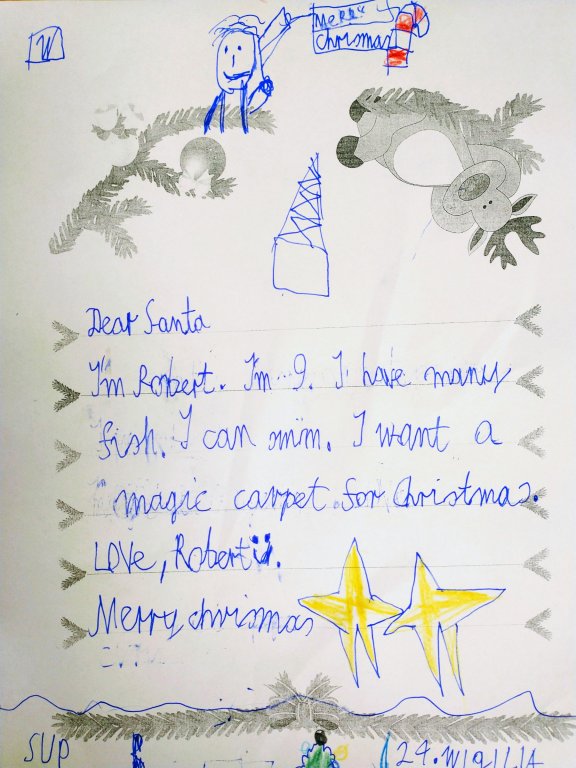 W
Merry
Chrismas
Dear Santa
I'm Robert. I'm 9. I have many
fish. I can smim. I want a
magic carpet for Christmas.
LOVE, Robert
Merry chrismas
SUP
24.WIGILIA